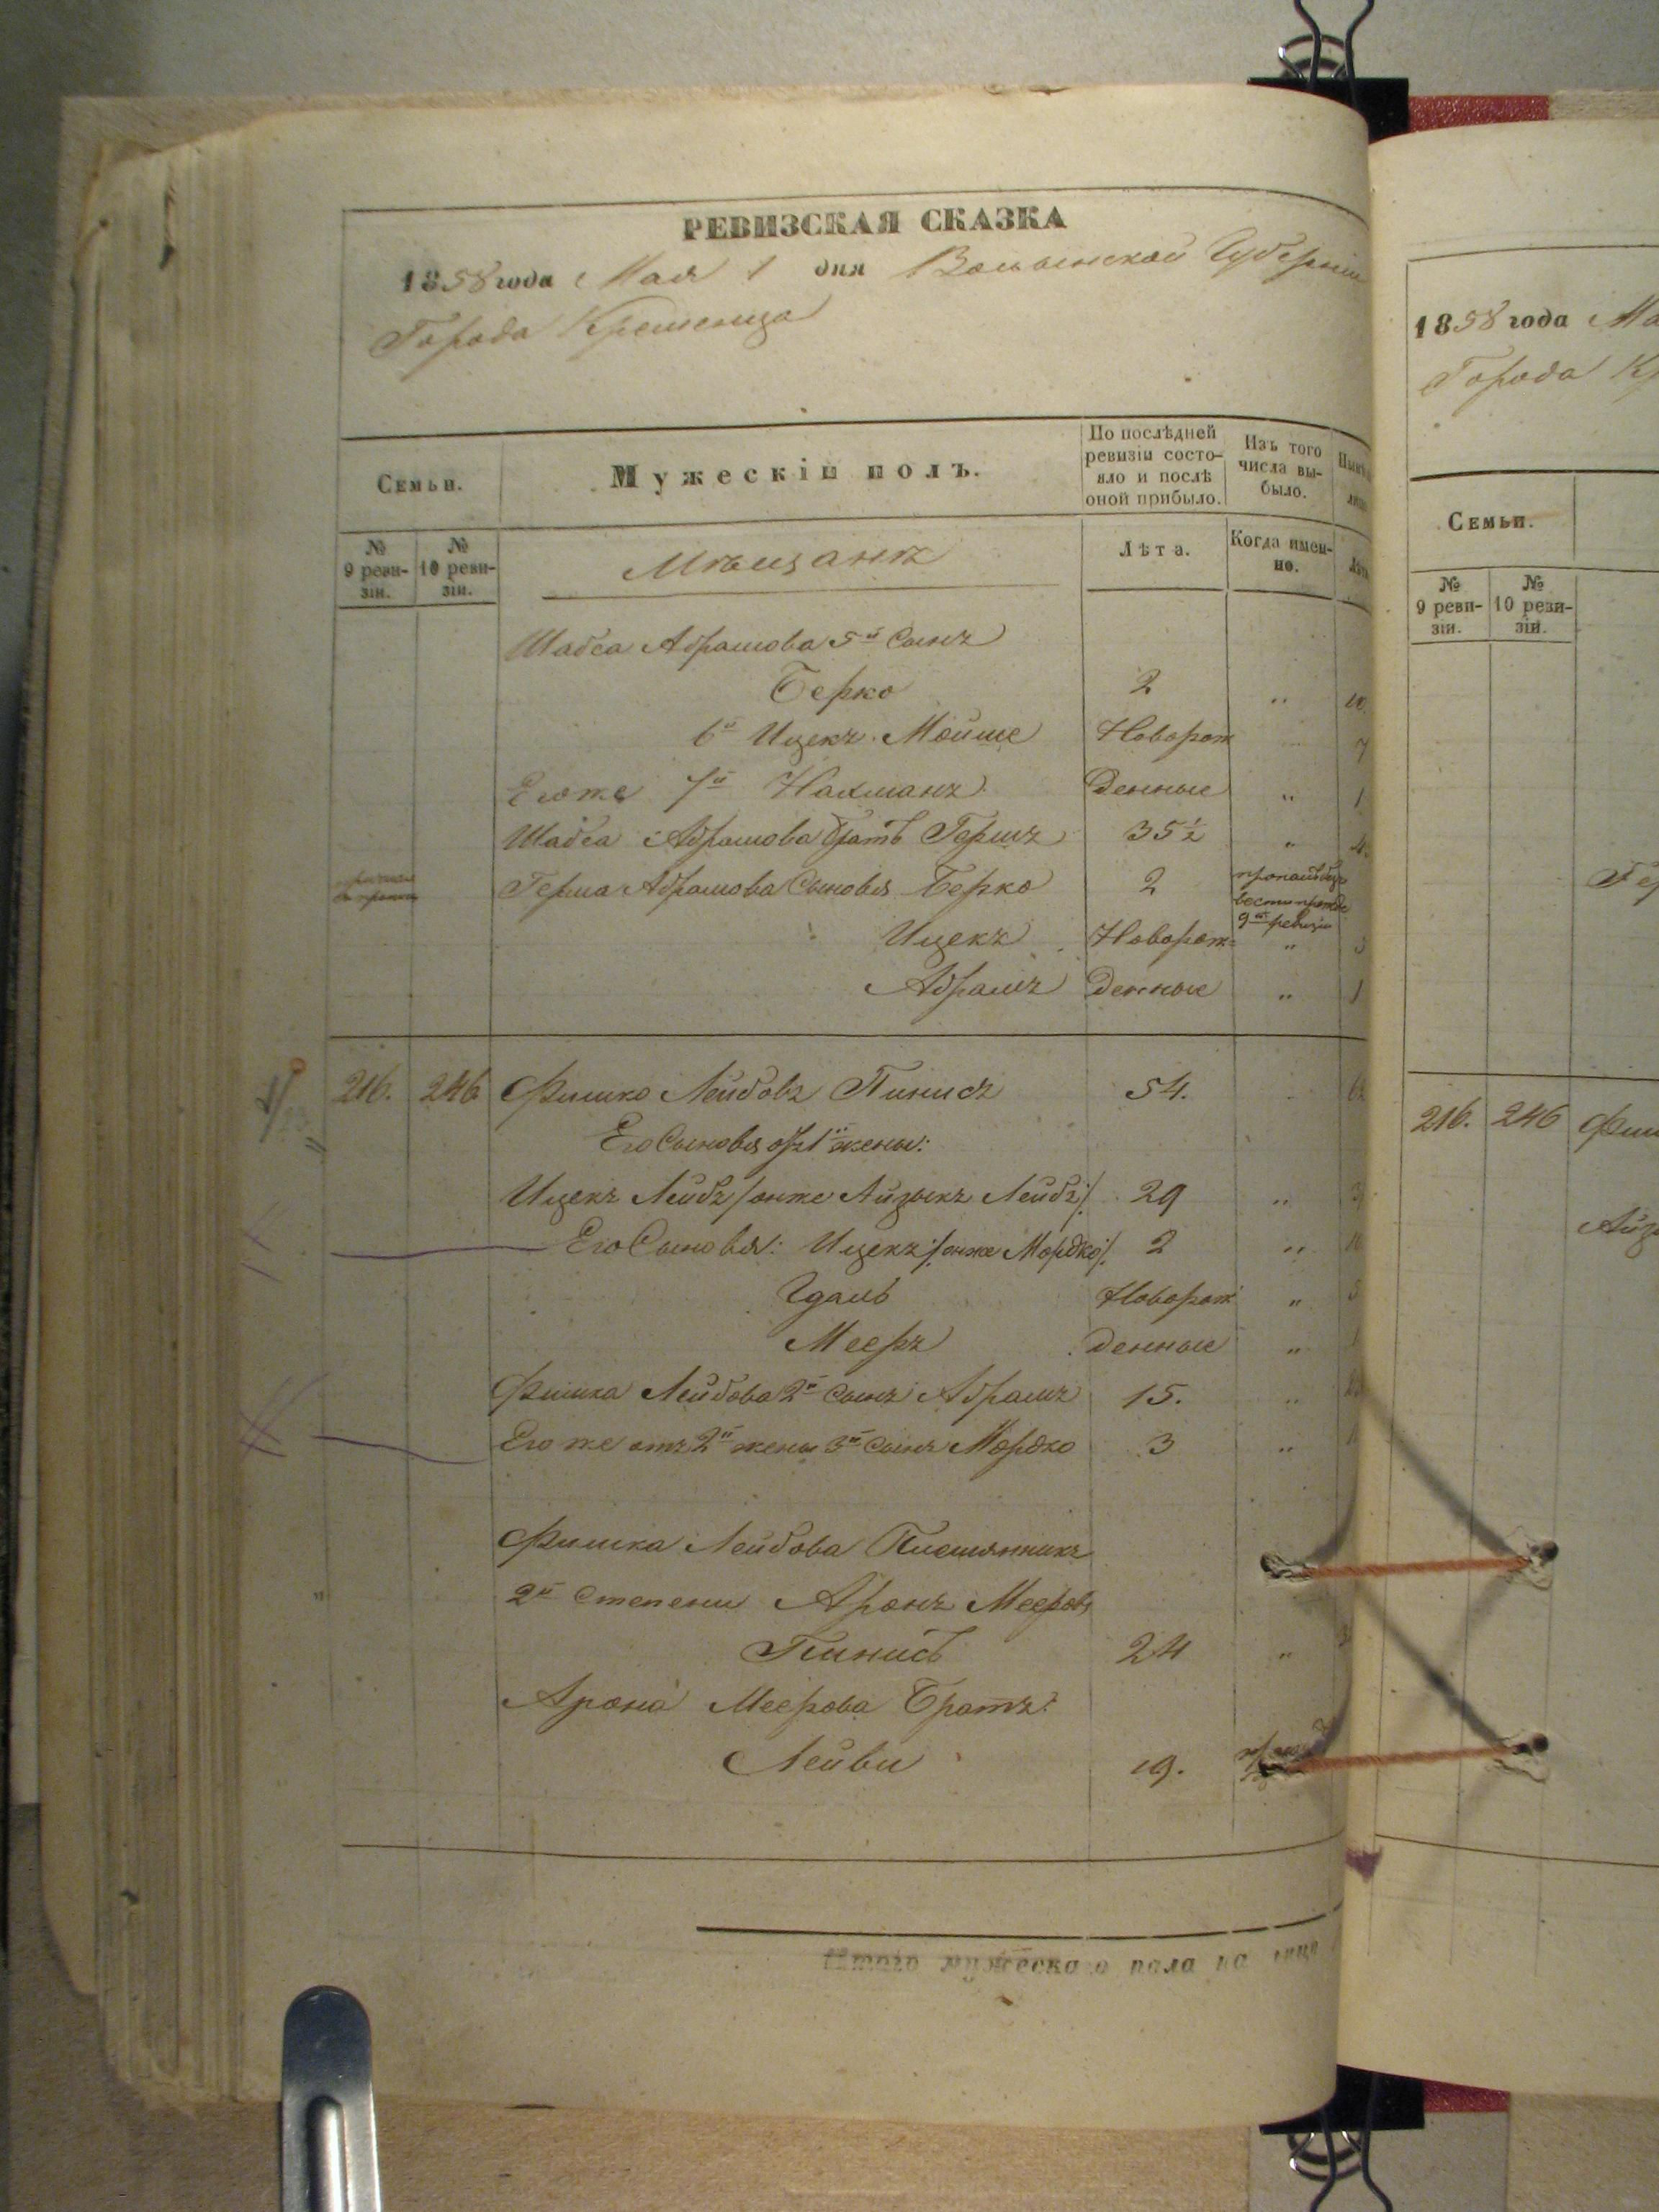 РЕВИЗСКАЯ СКАЗКА
1858 года Мая 1 дня Волынской Губернии
Города Кременца
Семьи.
Мужескій полъ.
По послѣдней ревизіи состо-
яло и послѣ
оной прибыло.
Изъ того
числа вы-
было.
№ 9 реви-
зіи.
№ 10 реви-
зіи.
Мѣщанъ
Лѣта.
Когда имен-
но.
Шабса Абрамова 5й Сынъ
Берко 2 „ 10.
6й Ицекъ Мойше Новорож „ 7
Его же 7й Нахманъ денные „ 1
Шабса Абрамова братъ Гершъ 35½ „
Герша Абрамова Сыновья Берко 2 пропалъ безъ
вести прежде
9й ревизіи
Ицекъ Новорож= „ 3
Абрамъ денные „ 1
216. 246 Фишко Лейбовъ Пинисъ 54.
Его Сыновья отъ 1й жены:
Ицекъ Лейбъ /онже Айзыкъ Лейбъ/. 29 „
Его Сыновья: Ицекъ /:онже Мордко:/. 2 „
Гдаль Новорож „ 5
Мееръ денные „
Фишка Лейбова 2й сынъ Абрамъ 15. „
Его же отъ 2й жены 3й Сынъ Мордко 3 „
Фишка Лейбова Племянникъ
2й Степени Аронъ Мееровъ
Пинисъ 24 „
Арона Меерова Братъ:
Лейви 19.
Итого мужеска о пола на лицо
1858 года Ма
Города Кр
Семьи.
№ 9 реви-
зіи.
№ 10 реви-
зіи.
Гер
216. 246 Фиш
Айз